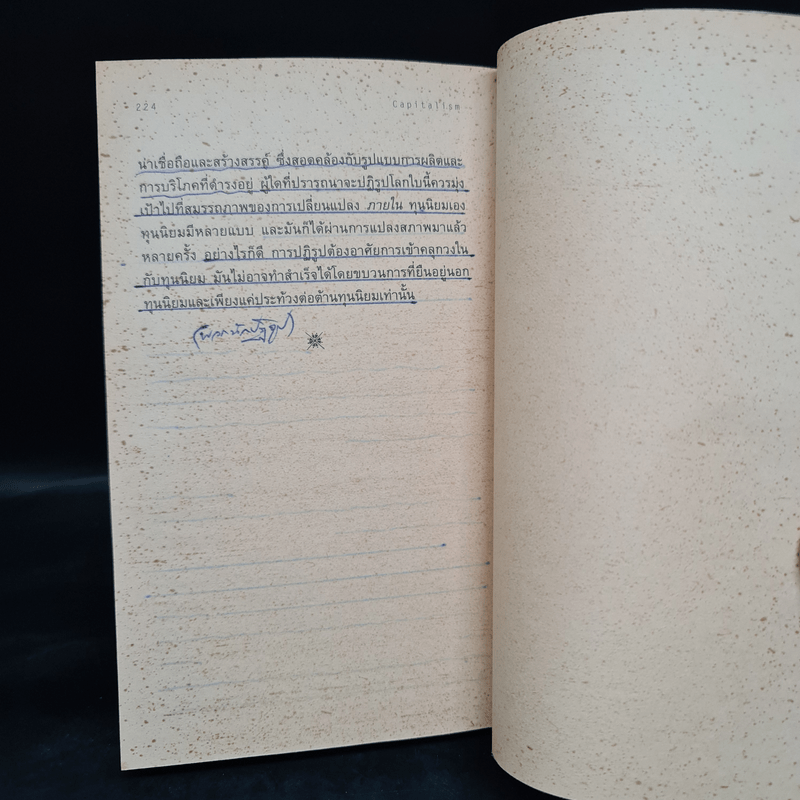 224
Capitalism
น่าเชื่อถือและสร้างสรรค์ ซึ่งสอดคล้องกับรูปแบบการผลิตและ
การบริโภคที่ดำรงอยู่ ผู้ใดที่ปรารถนาจะปฏิรูปโลกใบนี้ควรมุ่ง
เป้าไปที่สมรรถภาพของการเปลี่ยนแปลง ภายใน ทุนนิยมเอง
ทุนนิยมมีหลายแบบ และมันก็ได้ผ่านการแปลงสภาพมาแล้ว
หลายครั้ง อย่างไรก็ดี การปฏิรูปต้องอาศัยการเข้าคลุกวงใน
กับทุนนิยม มันไม่อาจทำสำเร็จได้โดยขบวนการที่ยืนอยู่นอก
ทุนนิยมและเพียงแค่ประท้วงต่อต้านทุนนิยมเท่านั้น
(พวกนักปฏิรูป)